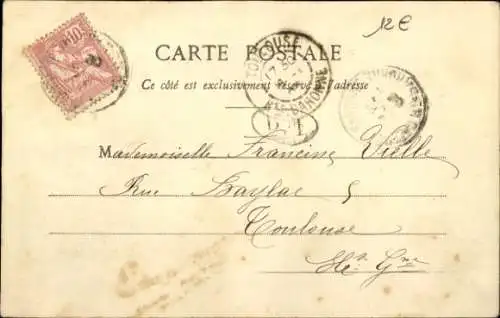 12€
10
CARTE POSTALE
Ce côté est exclusivement réservé à l'adresse
TOULOUSE
Hte GARONNE
Mademoiselle Francine Vielle
Rue Baylac 5
Toulouse
Hte Gne